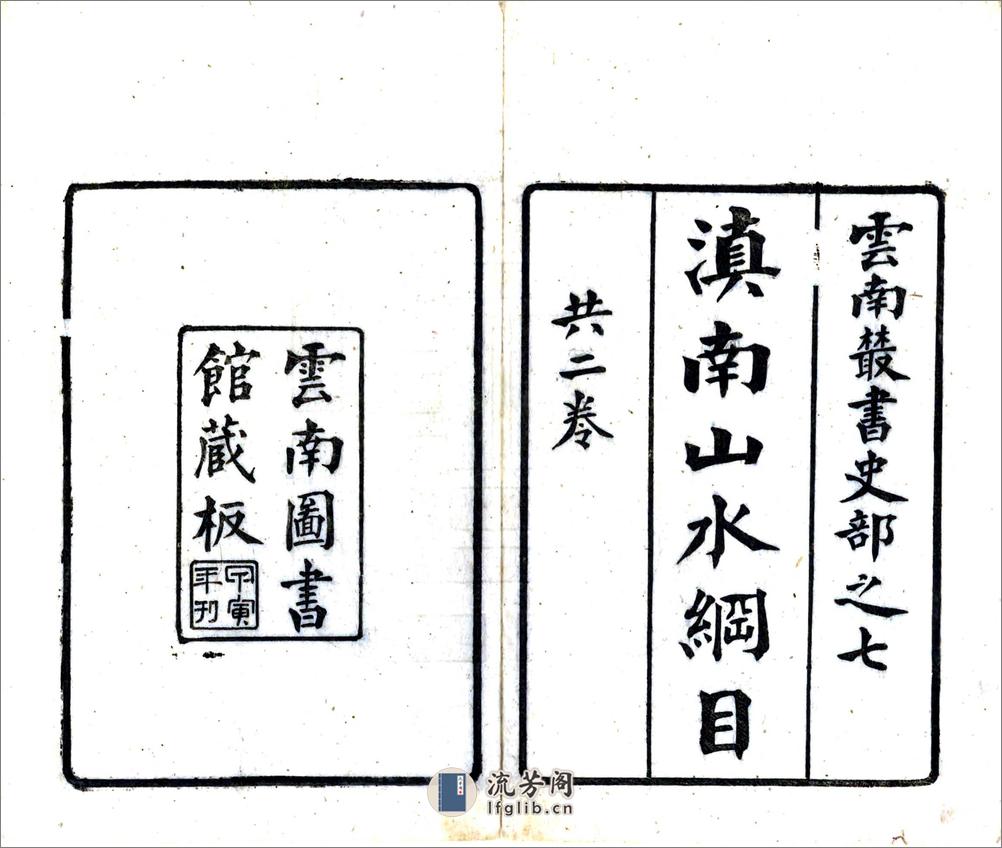 雲南叢書史部之七
滇南山水綱目
共二卷
雲南圖書
館藏板
甲寅
年刊
流芳阁
lfglib.cn